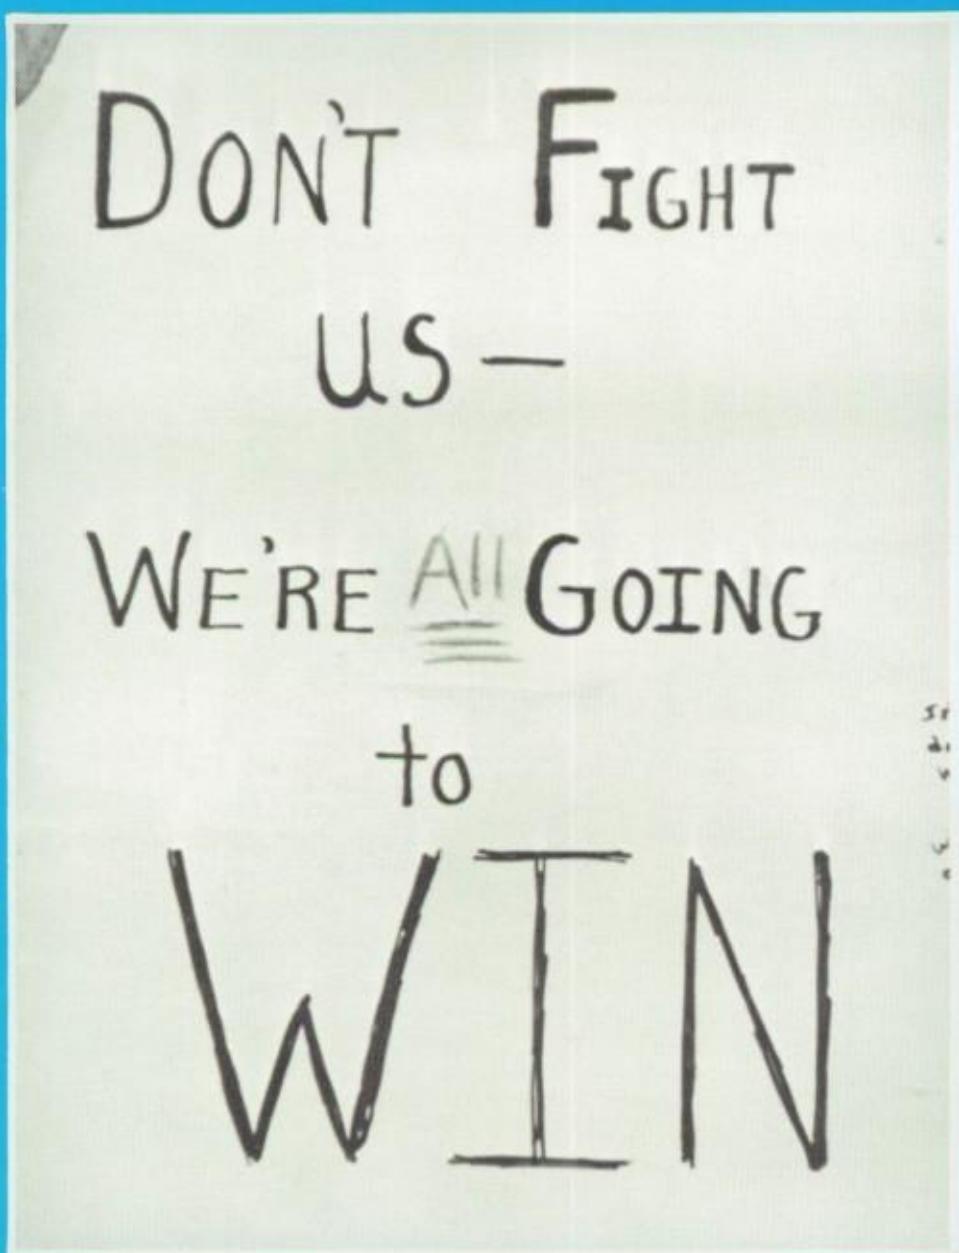 DON'T FIGHT
US —
WE'RE All GOING
to
WIN